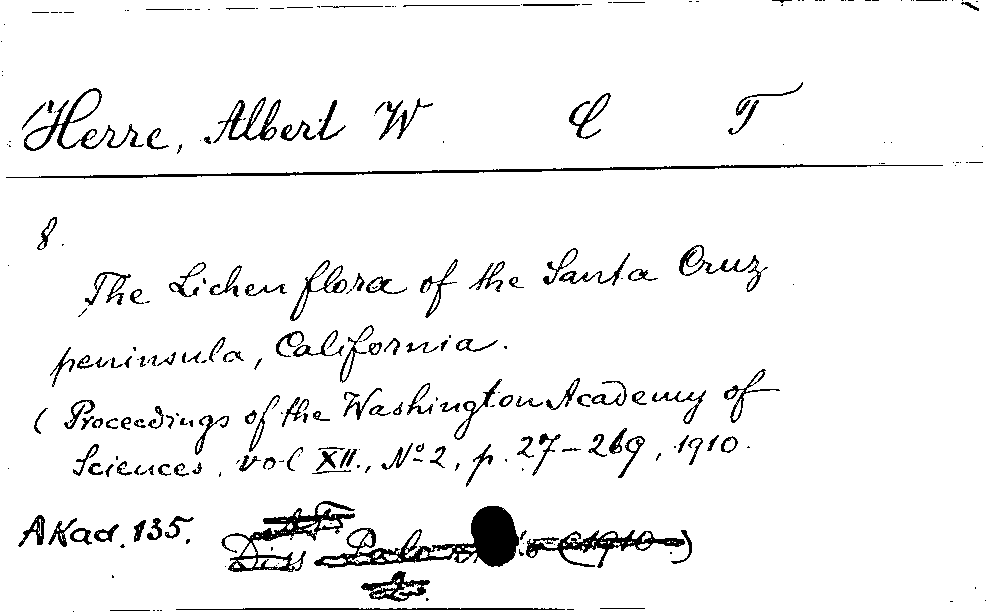 Herre, Albert W C T
8.
The Lichen flora of the Santa Cruz
peninsula, California.
(Proceedings of the Washington Academy of
Sciences, vol XII., No 2, p. 27-269, 1910.
AKad. 135.
Diss (1910)